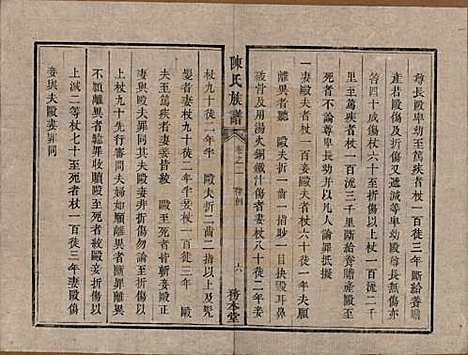 尊長毆卑幼至篤疾者杖一百徒三年斷給養贍
產若毆傷及折傷又遞減等卑幼毆尊長無折傷亦
笞四十成傷杖六十至折傷以上杖一百流二千
里至篤疾者杖一百流三千里斷給養贍產毆至
死者不論尊卑長幼並以凡人論罪抵擬
一妻毆夫者杖一百妾毆夫者杖六十徒一年夫願
離異者聽 毆夫折一齒一指眇一目抉毀耳鼻
破骨及用湯火銅鐵汁傷者妻杖八十徒二年妾
陳氏族譜
六
務本堂
杖九十徒二年半 毆夫折二齒二指以上及髠
髮者妻杖九十徒二年半妾杖一百徒三年 毆
夫至篤疾者妻妾皆絞 毆夫至死者皆斬妾毆正
妻與毆夫罪同其夫毆妻非折傷勿論至折傷以
上杖九十先行審問夫婦如願離異者斷罪離異
不願離異者罪至死者絞毆妾至折傷以
上減二等杖七十至死者杖一百徒三年妻毆傷
妾與夫毆妻罪同